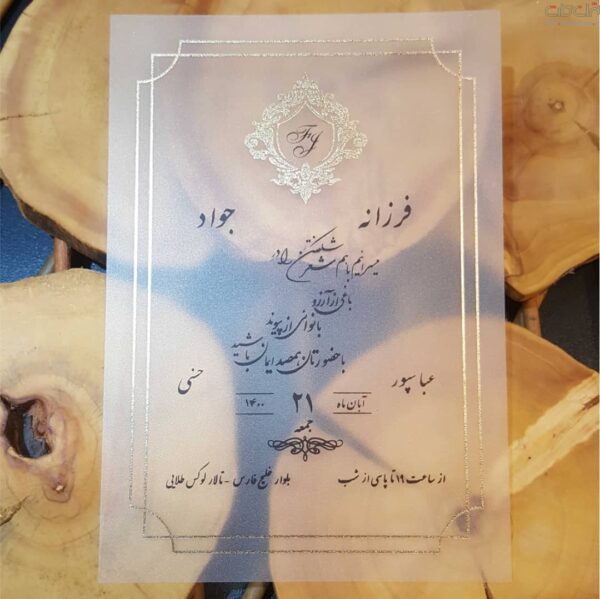 FJ
فرزانه جواد
میسرائیم با هم شعر شکفتن را در
باغی از آرزو
با نوائی از پیوند
با حضورتان همصدایمان باشید
عباسپور حسنی
آبان ماه ۲۱ ۱۴۰۰
جمعه
از ساعت ۱۹ تا پاسی از شب
بلوار خلیج فارس - تالار لوکس طلایی